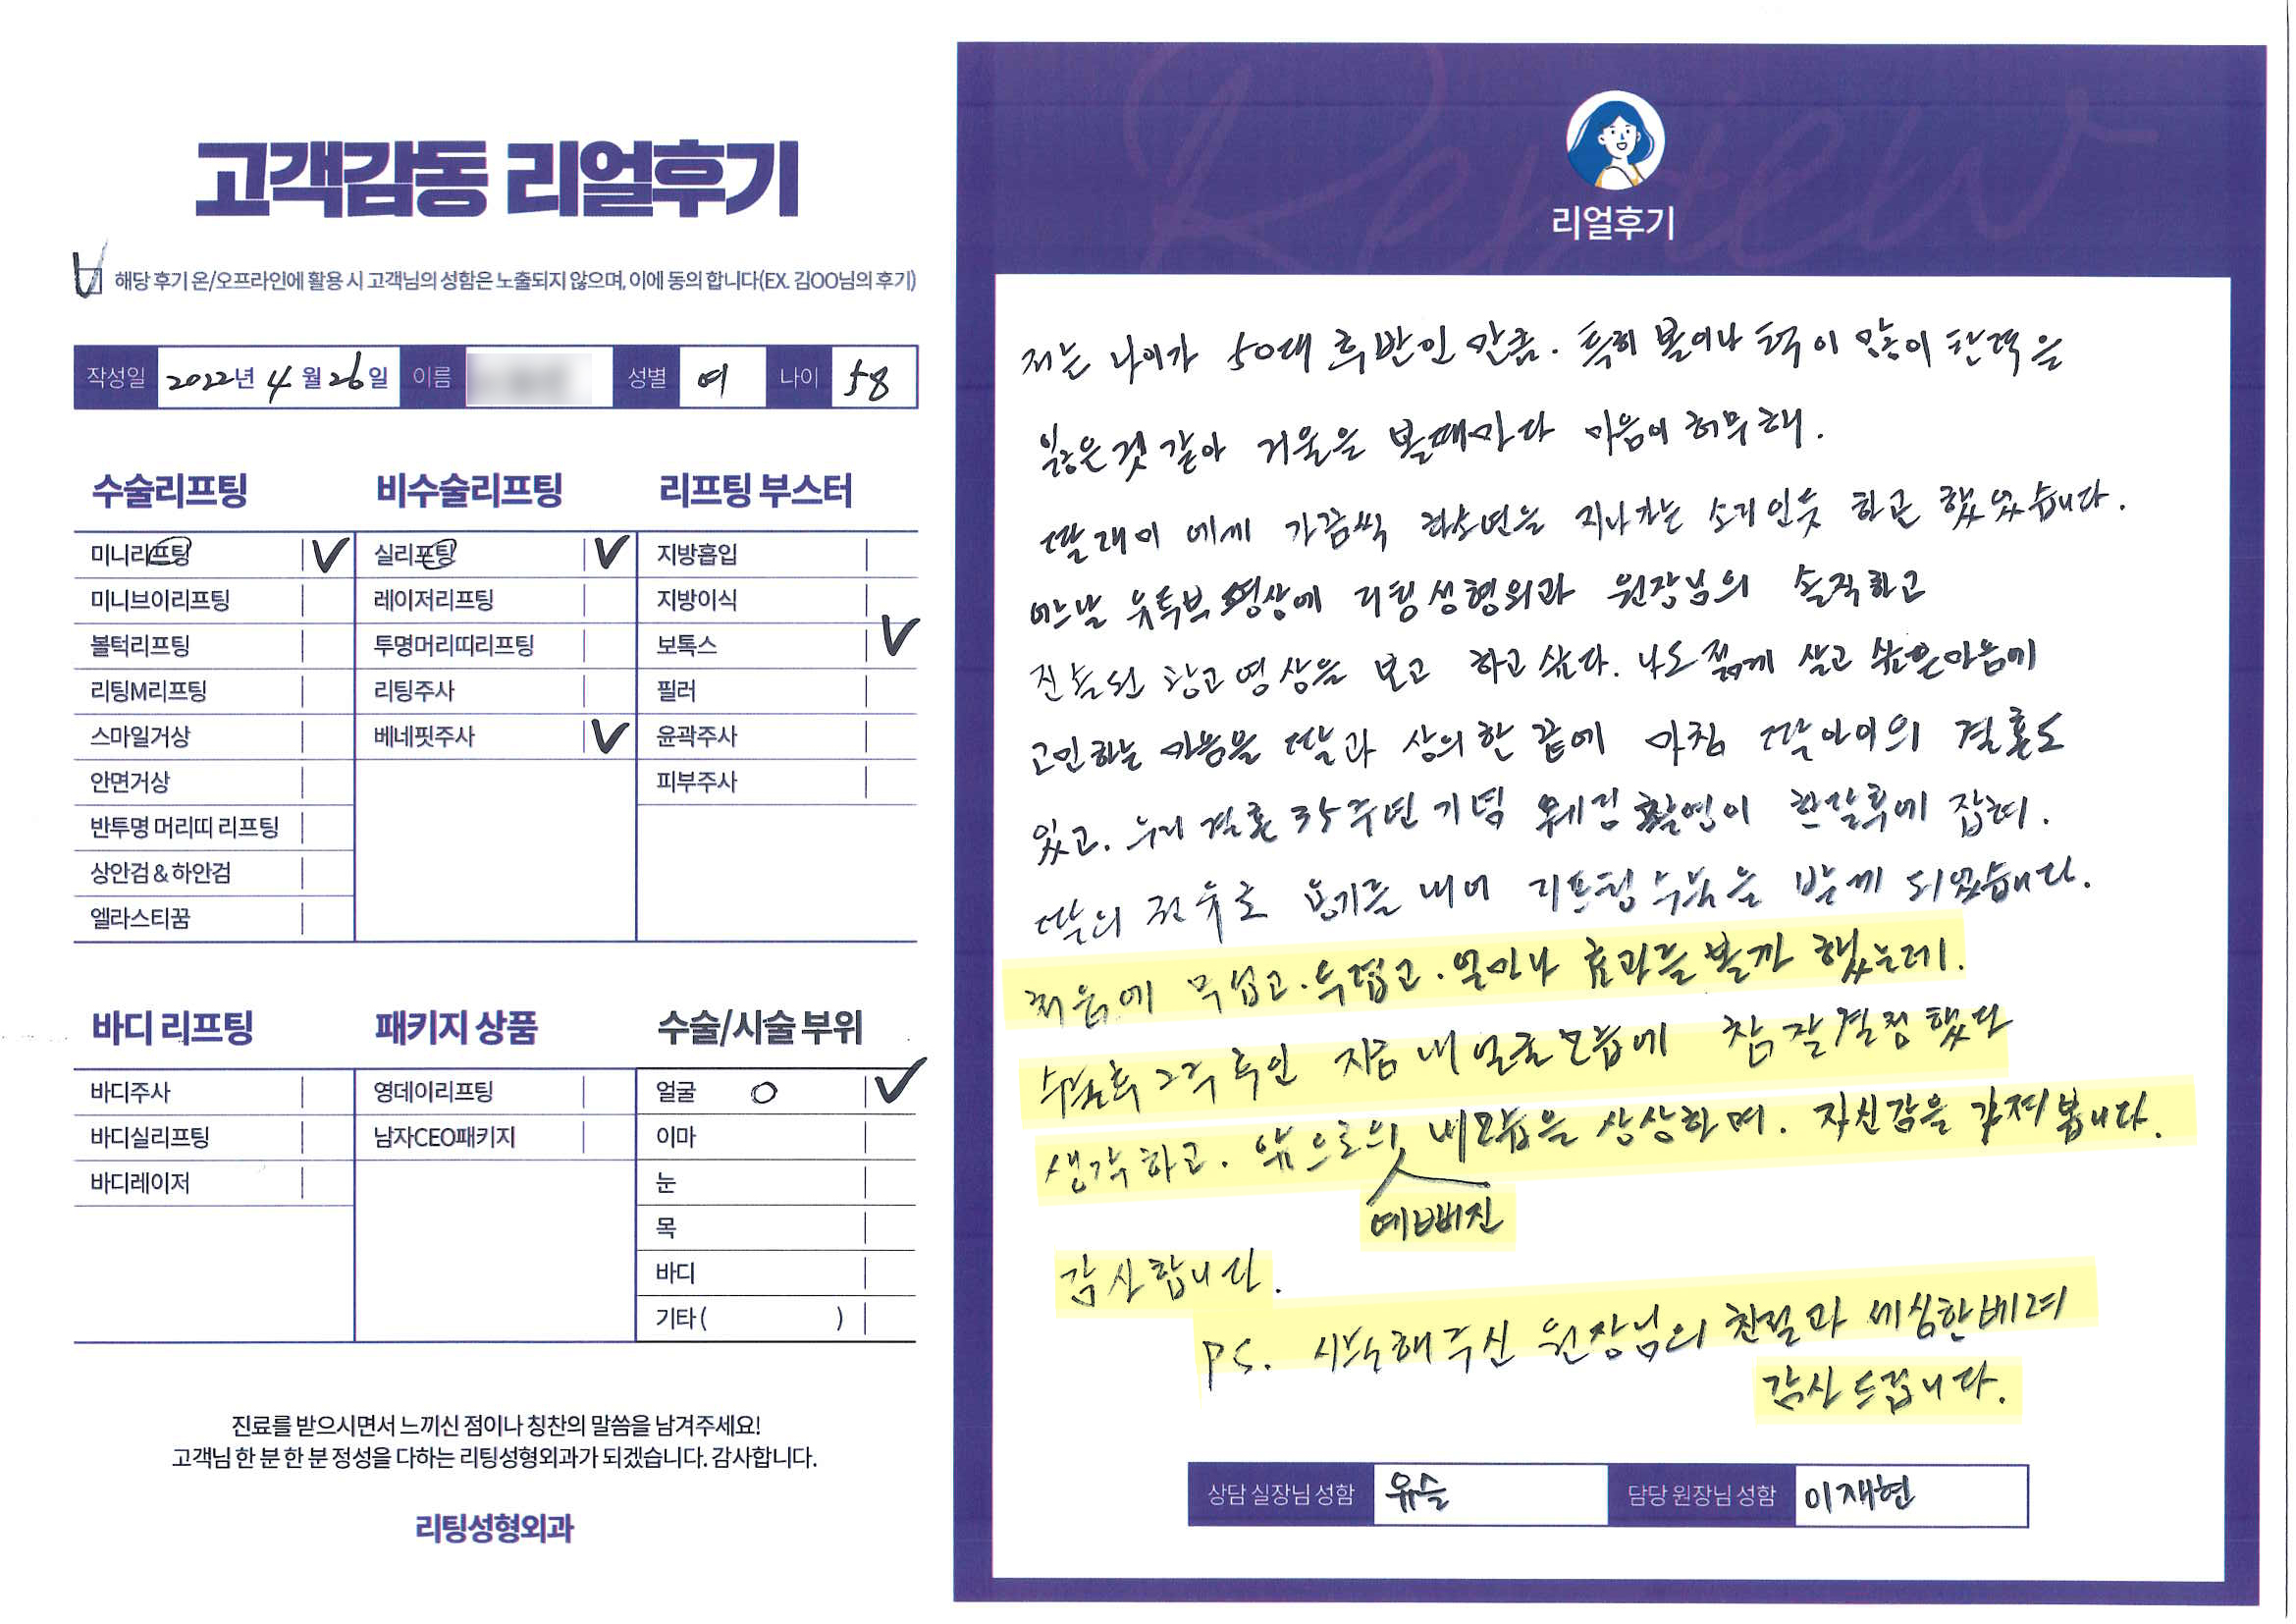 고객감동 리얼후기
해당 후기 온/오프라인에 활용 시 고객님의 성함은 노출되지 않으며, 이에 동의 합니다(EX. 김OO님의 후기)
작성일 2022년 4월 26일 이름 성별 여 나이 58
수술리프팅
미니리프팅 ✓
미니브이리프팅
볼턱리프팅
리팅M리프팅
스마일거상
안면거상
반투명 머리띠 리프팅
상안검 & 하안검
엘라스티꿈
비수술리프팅
실리프팅 ✓
레이저리프팅
투명머리띠리프팅
리팅주사
베네핏주사 ✓
리프팅 부스터
지방흡입
지방이식
보톡스 ✓
필러
윤곽주사
피부주사
바디 리프팅
바디주사
바디실리프팅
바디레이저
패키지 상품
영데이리프팅
남자CEO패키지
수술/시술 부위
얼굴 O ✓
이마
눈
목
바디
기타 ( )
진료를 받으시면서 느끼신 점이나 칭찬의 말씀을 남겨주세요!
고객님 한 분 한 분 정성을 다하는 리팅성형외과가 되겠습니다. 감사합니다.
리팅성형외과
Review
리얼후기
저는 나이가 50대 후반인 만큼. 특히 볼이나 턱이 많이 탄력을
잃은것 같아 거울을 볼때마다 마음이 허무해.
딸래미 에게 가끔씩 하소연을 지나가는 소리인듯 하곤 했었습니다.
어느날 유투브 영상에 리팅성형외과 원장님의 솔직하고
진솔된 광고영상을 보고 하고싶다. 나도 젊게 살고 싶은마음에
고민하는 마음을 딸과 상의한 끝에 마침 딸아이의 결혼도
있고. 우리 결혼 35주년 기념 웨딩촬영이 한달후에 잡혀.
딸의 권유로 용기를 내어 리프팅수술을 받게 되었습니다.
처음에 무섭고. 두렵고. 얼마나 효과를 볼까 했는데.
수술후 2주 후인 지금 내 얼굴모습에 참 잘결정했다
생각하고. 앞으로의 예뻐진 내모습을 상상하며. 자신감을 가져봅니다.
감사합니다.
PS. 시술해주신 원장님의 친절과 세심한베려
감사드립니다.
상담 실장님 성함 유슬 담당 원장님 성함 이재현